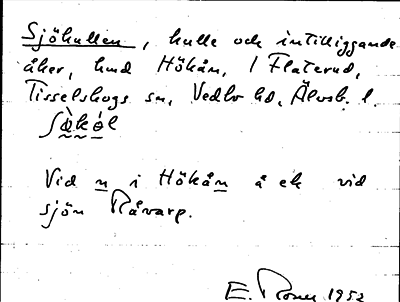 Sjökullen, kulle och intilliggande
åker, hmd Hökån, 1 Flaterud,
Tisselskogs sn, Vedbo hd, Älvsb. l.
Vid n i Hökån å ek vid
sjön Råvarp.
E. 1952